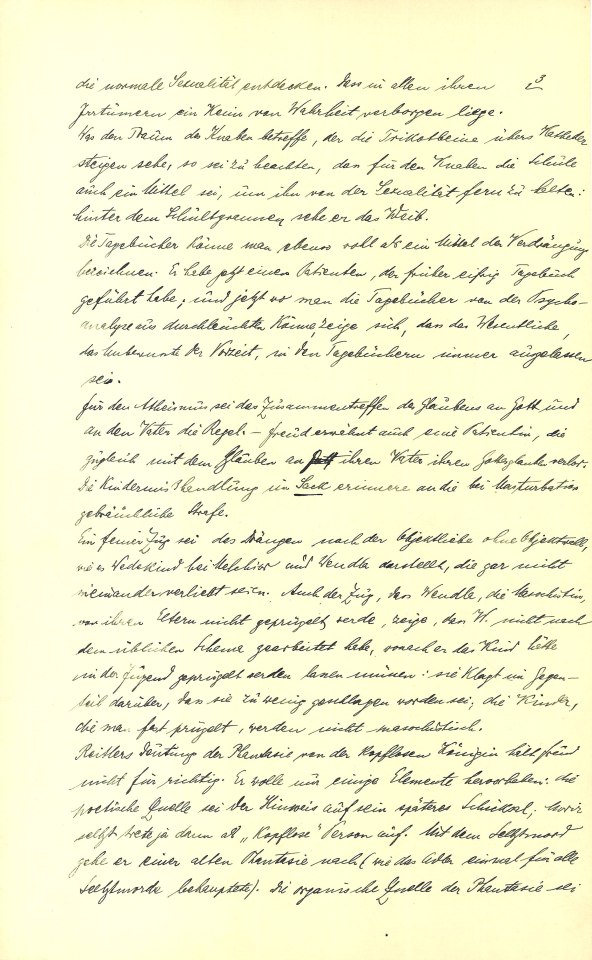 die normale Sexualität entdecken. Dass in allen ihren 3
Irrtümern ein Keim von Wahrheit verborgen liege.
Was den Traum des Knaben betreffe, der die Trikotbeine übers Katheder
steigen sehe, so sei zu beachten, dass für den Knaben die Schule
auch ein Mittel sei, um ihn von der Sexualität fern zu halten:
hinter dem Schultyrannen sehe er das Weib.
Die Tagebücher könne man ebenso wohl als ein Mittel der Verdrängung
bezeichnen. Er habe jetzt einen Patienten, der früher eifrig Tagebuch
geführt habe; und jetzt wo man die Tagebücher von der Psycho-
analyse aus durchleuchten könne, zeige sich, dass das Wesentliche,
das Unbewusste der Vorzeit, in den Tagebüchern immer ausgelassen
sei.
Für den Atheismus sei das Zusammentreffen des Glaubens an Gott und
an den Vater die Regel. – Freud erwähnt auch eine Patientin, die
zugleich mit dem Glauben an ihren Vater ihren Gottesglauben verlor.
Die Kindermisshandlung im Sack erinnere an die bei Masturbation
gebräuchliche Strafe.
Ein feiner Zug sei das Drängen nach der Objektliebe ohne Objektwahl,
wie es Wedekind bei Melchior und Wendla darstellt, die gar nicht
ineinander verliebt seien. Auch der Zug, dass Wendla, die Masochistin,
von ihren Eltern nicht geprügelt werde, zeige, dass W. nicht nach
dem üblichen Schema gearbeitet habe, wonach er das Kind hätte
in der Jugend geprügelt werden lassen müssen: sie klagt im Gegen-
teil darüber, dass sie zu wenig geschlagen worden sei; die Kinder,
die man fest prügelt, werden nicht masochistisch.
Reitlers Deutung der Phantasie von der kopflosen Königin hält Freud
nicht für richtig. Er wolle nur einige Elemente hervorheben: die
poetische Quelle sei der Hinweis auf sein späteres Schicksal; Moriz
selbst trete ja dann als „Kopflose" Person auf. Mit dem Selbstmord
gehe er einer alten Phantasie nach (wie das Adler einmal für alle
Selbstmorde behauptete). Die organische Quelle der Phantasie sei